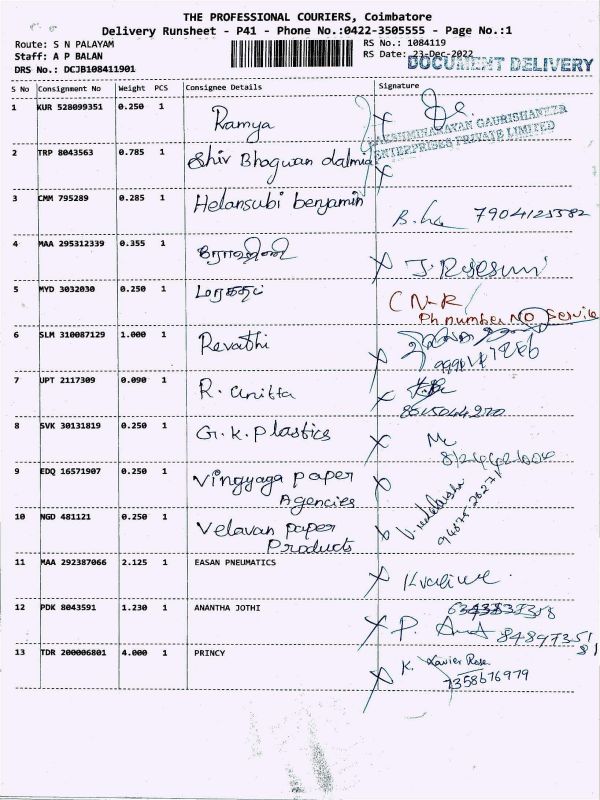 THE PROFESSIONAL COURIERS, Coimbatore
Delivery Runsheet - P41 - Phone No.:0422-3505555 - Page No.:1
Route: S N PALAYAM
Staff: A P BALAN
DRS No.: DCJB108411901
RS No.: 1084119
RS Date: 23-Dec-2022
DOCUMENT DELIVERY
S No Consignment No Weight PCS Consignee Details Signature
1 KUR 528099351 0.250 1 Ramya
LAKSHMINARAYAN GAURISHANKER
ENTERPRISES PRIVATE LIMITED
2 TRP 8043563 0.785 1 Shiv Bhagwan dalmia
3 CMM 795289 0.285 1 Helansubi benjamin
7904125582
4 MAA 295312339 0.355 1
5 MYD 3032030 0.250 1
CNR
Ph number NO Service
6 SLM 310087129 1.000 1 Revathi
7 UPT 2117309 0.090 1 R. anitta
8 SVK 30131819 0.250 1 G.K. Plastics
9 EDQ 16571907 0.250 1 Vingyaga paper
Agencies
10 NGD 481121 0.250 1 Velavan paper
Products
11 MAA 292387066 2.125 1 EASAN PNEUMATICS
12 PDK 8043591 1.230 1 ANANTHA JOTHI
P.
84897351
81
13 TDR 200006801 4.000 1 PRINCY K. Xavier Rose
7358676979